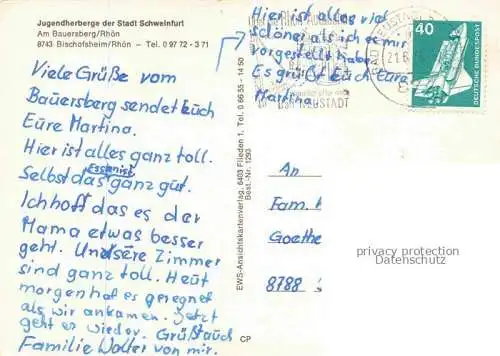 Jugendherberge der Stadt Schweinfurt
Am Bauersberg/Rhön
8743 Bischofsheim/Rhön - Tel. 0 97 72 - 3 71
Viele Grüße vom
Bauersberg sendet Euch
Eure Martina.
Hier ist alles ganz toll.
Selbst das Essen ist ganz gut.
Ich hoff das es der
Mama etwas besser
geht. Unsere Zimmer
sind ganz toll. Heut
morgen hat es geregnet
als wir ankamen. Jetzt
geht es wieder. Grüßt auch
Familie Wolter von mir.
EWS-Ansichtskartenverlag, 6403 Flieden 1, Tel. 0 66 55 - 14 50
Best.-Nr. 1293
CP
Hier ist alles viel
schöner als ich es mir
vorgestellt habe.
Es grüßt Euch Eure
Martina.
NEUSTADT
40
DEUTSCHE BUNDESPOST
An
Fam.
Goethe
8788
privacy protection
Datenschutz